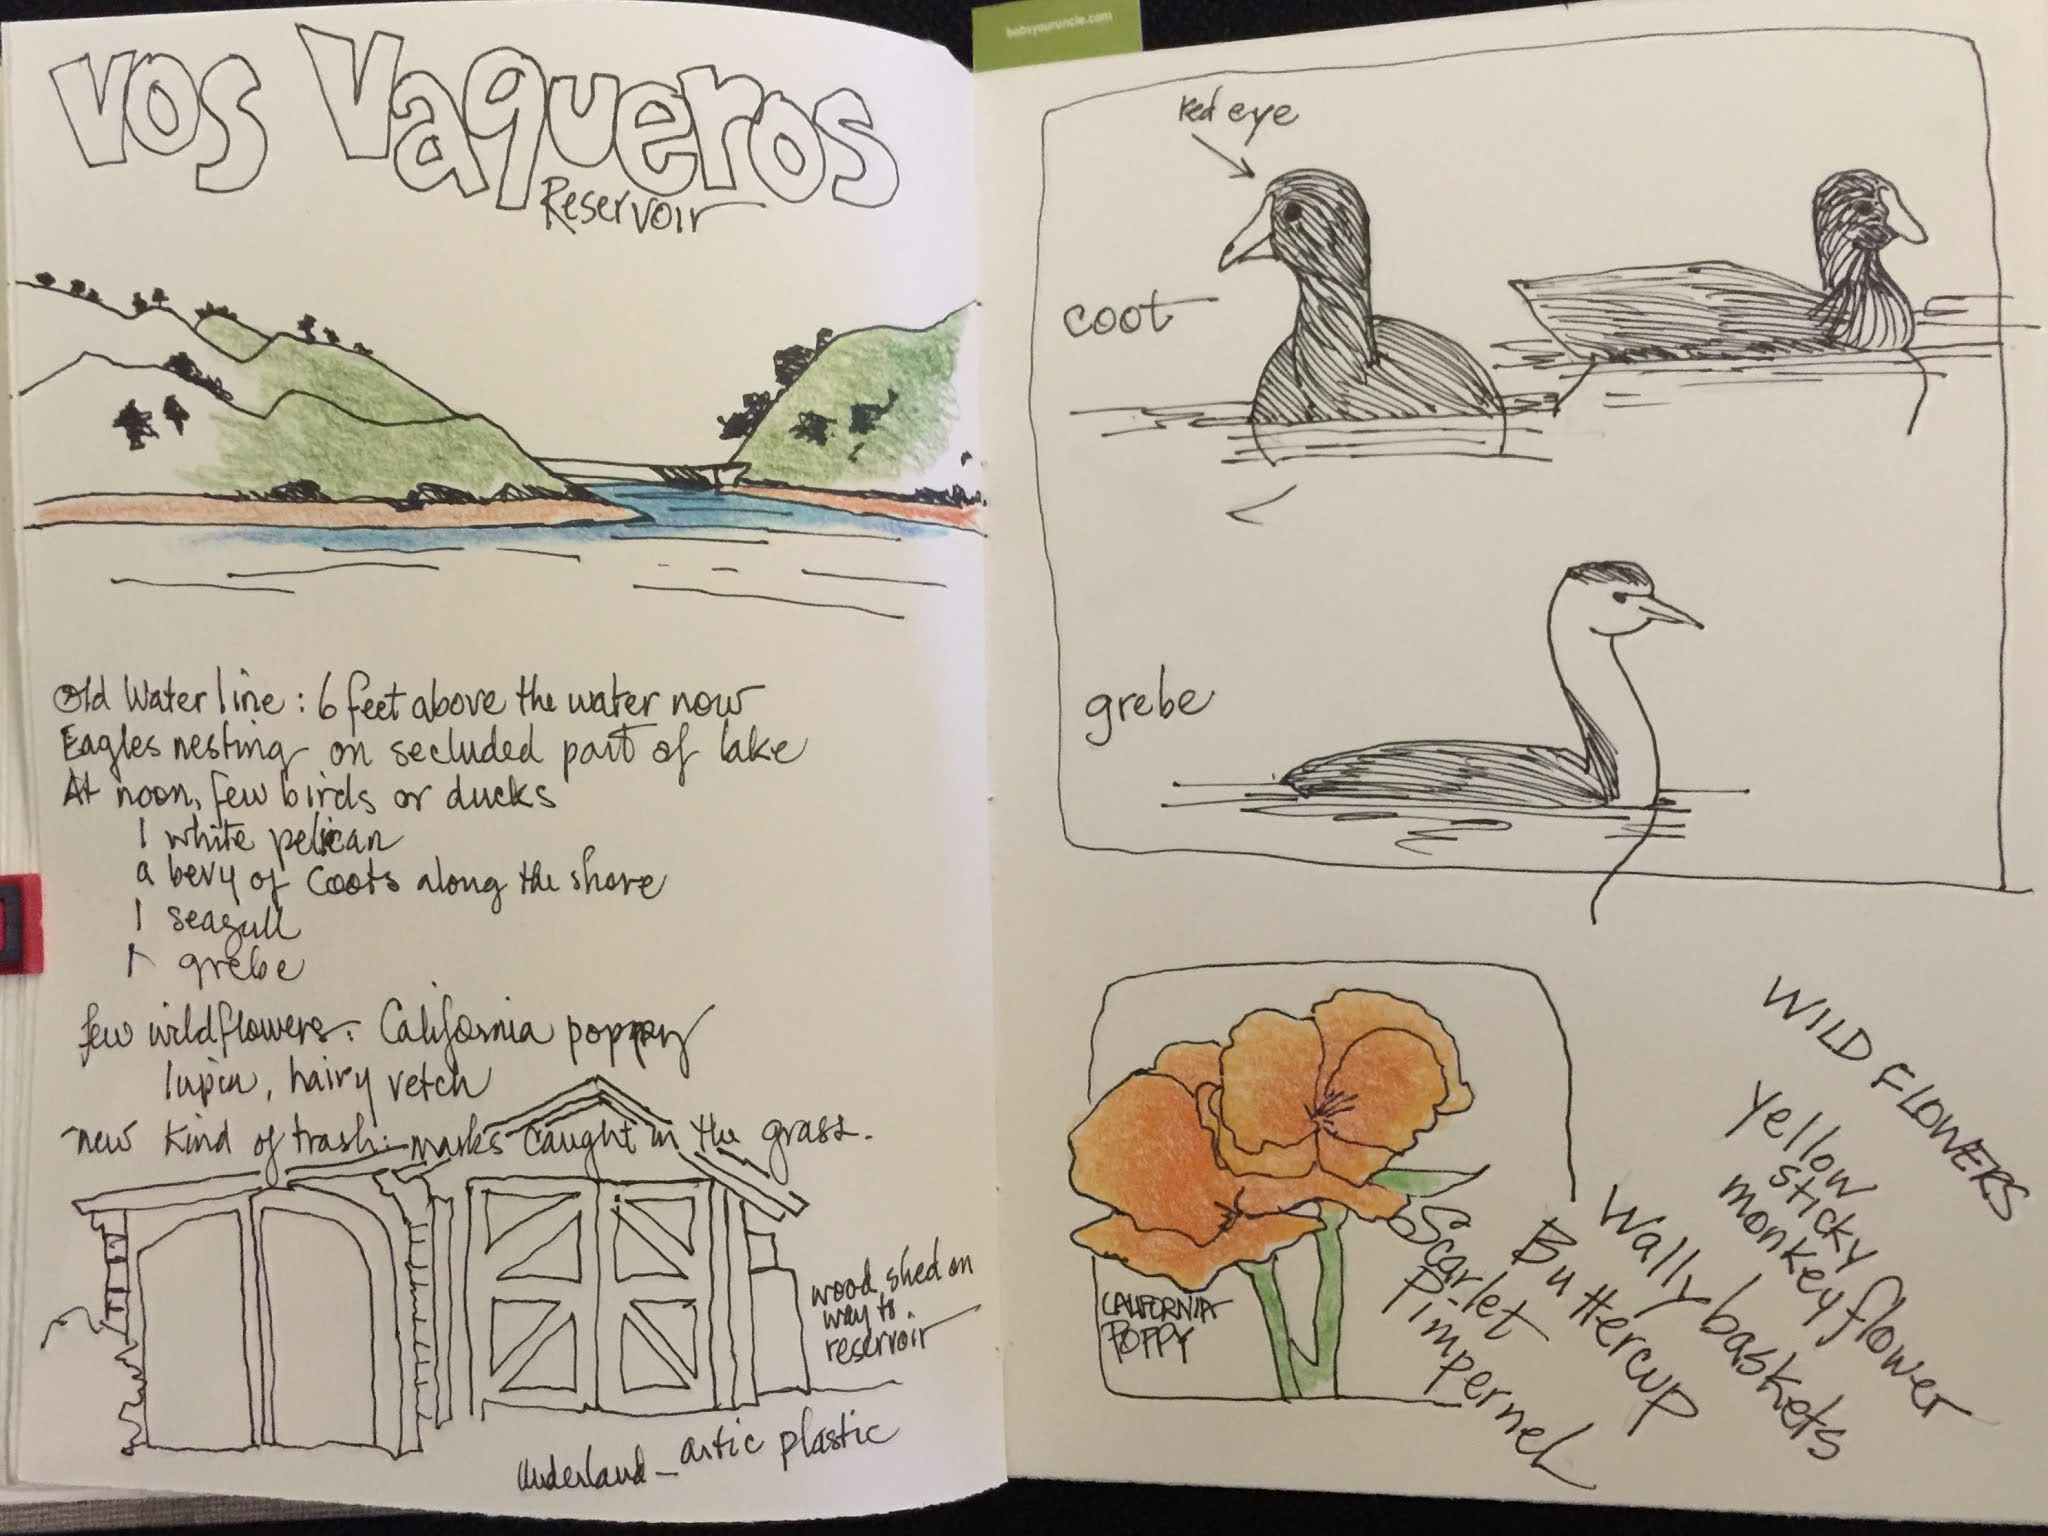 Vos Vaqueros
Reservoir
Old Water line : 6 feet above the water now
Eagles nesting on secluded part of lake
At noon, few birds or ducks
1 white pelican
a bevy of coots along the shore
1 seagull
1 grebe
few wildflowers: California poppy
lupin, hairy vetch
new kind of trash: masks caught in the grass.
wood shed on
way to
reservoir
artic plastic
babsyouruncle.com
red eye
coot
grebe
CALIFORNIA
POPPY
WILD FLOWERS
yellow
sticky
monkey flower
Wally baskets
Buttercup
Scarlet
Pimpernel